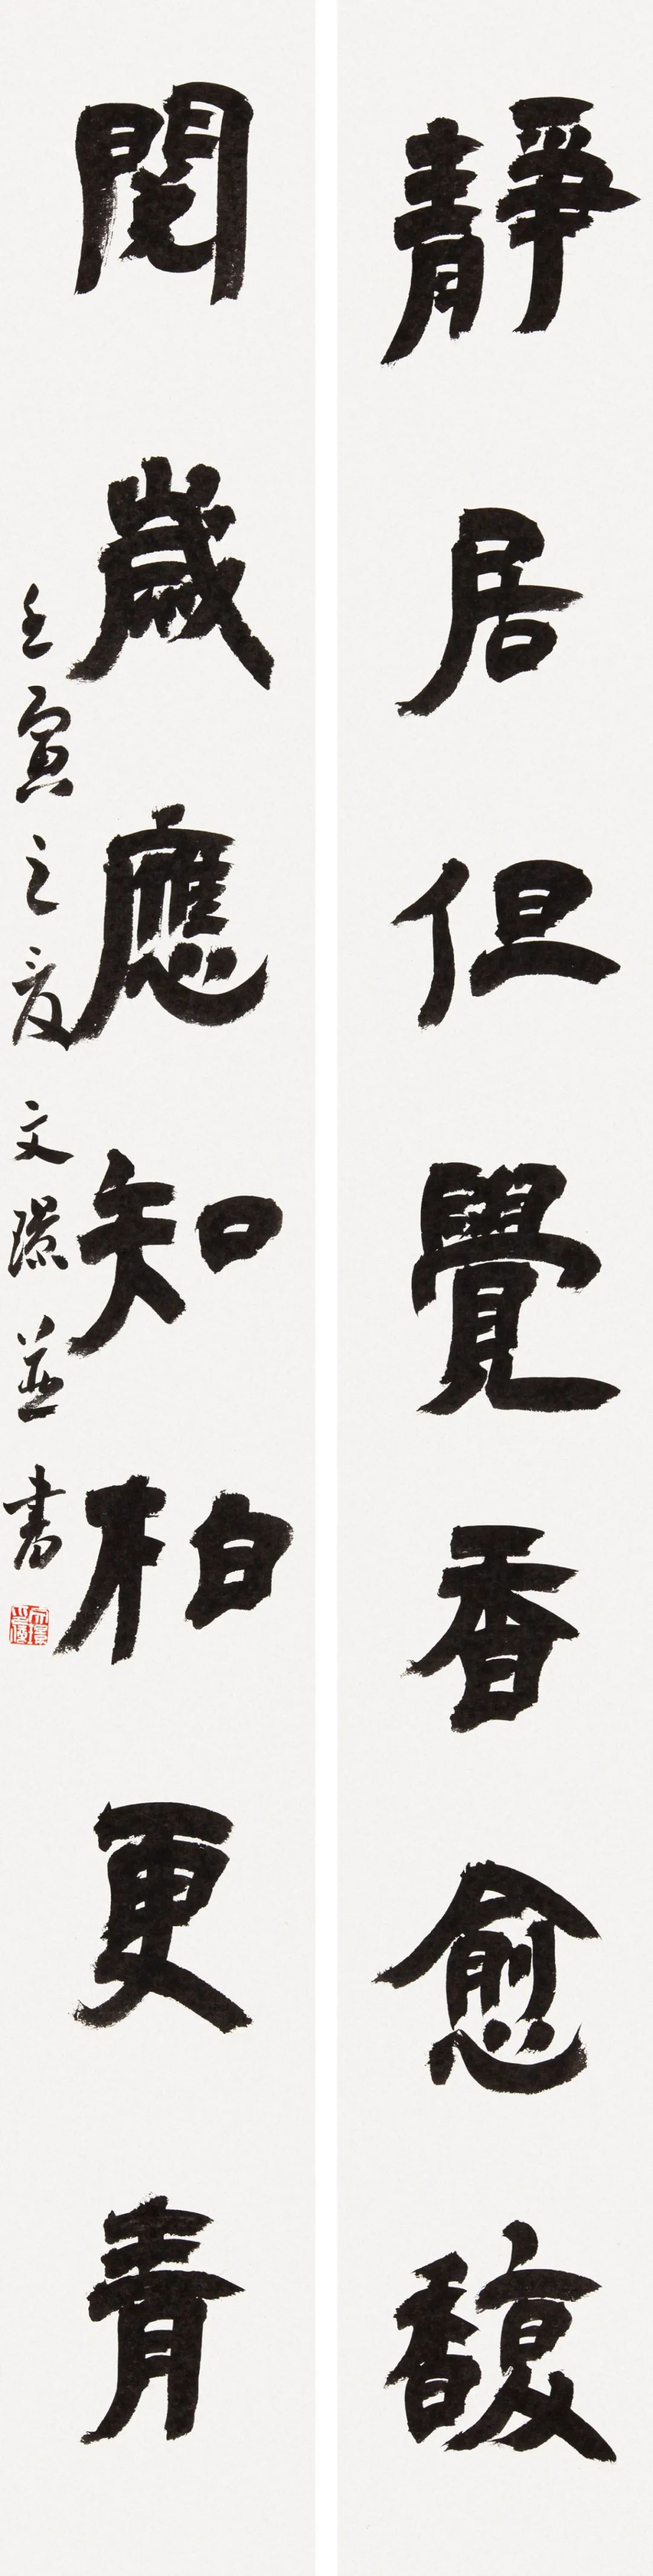 靜居但覺香愈馥
閱歲應知柏更青
壬寅之夏文璟並書